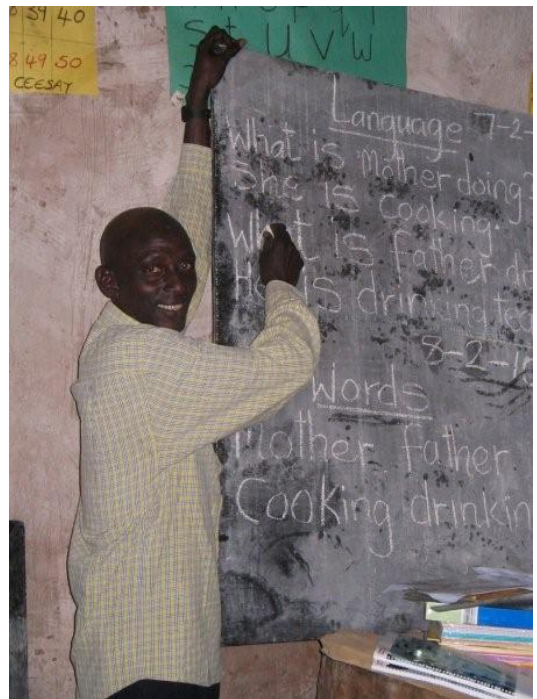 39 40
8 49 50
CEESAY
U V W
Language 7-2-
What is Mother doing?
She is Cooking.
What is Father do
He is drinking tea
8-2-10
Words
Mother Father
Cooking drinkin